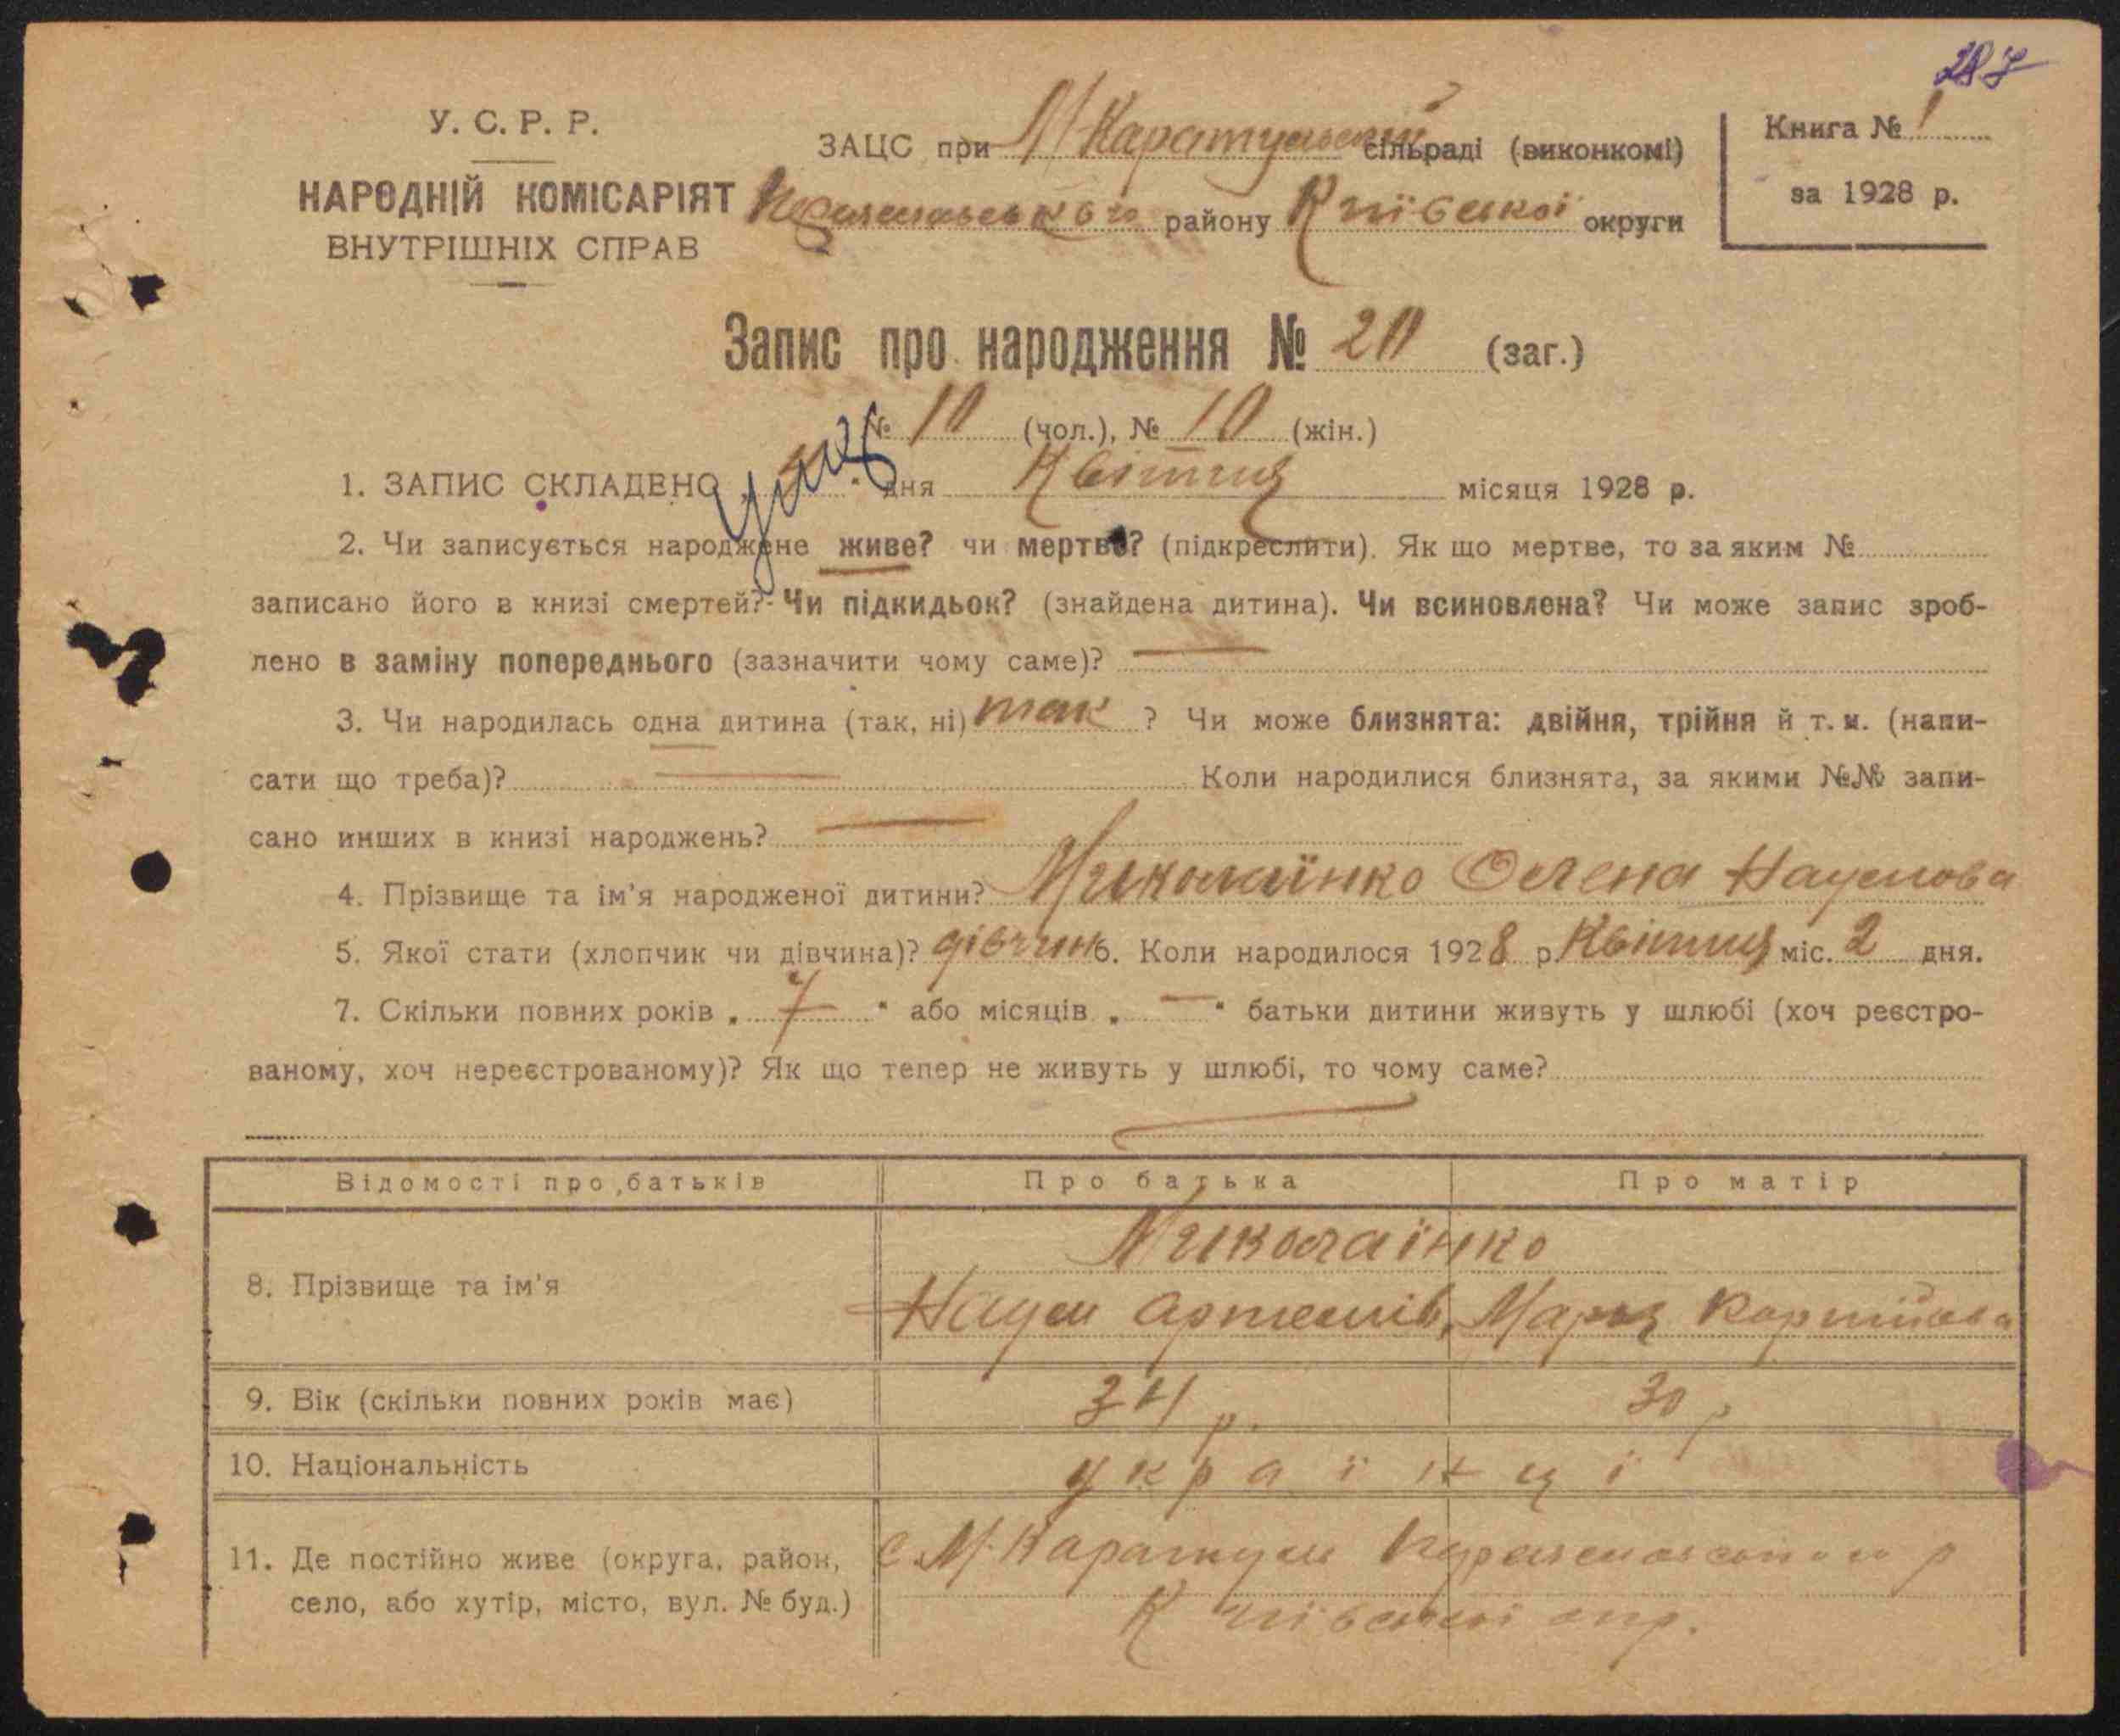 287
У. С. Р. Р.
НАРОДНІЙ КОМІСАРІЯТ
ВНУТРІШНІХ СПРАВ
ЗАЦС при М Каратульській сільраді (виконкомі)
району Київської округи
Книга № 1
за 1928 р.
Запис про народження № 20 (заг.)
№ 10 (чол.), № 10 (жін.)
1. ЗАПИС СКЛАДЕНО „ “ дня Квітня місяця 1928 р.
2. Чи записується народжене живе? чи мертве? (підкреслити). Як що мертве, то за яким №
записано його в книзі смертей? Чи підкидьок? (знайдена дитина). Чи всиновлена? Чи може запис зроб-
лено в заміну попереднього (зазначити чому саме)? —
3. Чи народилась одна дитина (так, ні) так ? Чи може близнята: двійня, трійня й т. и. (напи-
сати що треба)? — Коли народилися близнята, за якими №№ запи-
сано инших в книзі народжень? —
4. Прізвище та ім'я народженої дитини? Миколаїнко Олена Наумова
5. Якої стати (хлопчик чи дівчина)? дівчин 6. Коли народилося 1928 р. Квітня міс. 2 дня.
7. Скільки повних років „ 7 “ або місяців „ — “ батьки дитини живуть у шлюбі (хоч реєстро-
ваному, хоч нереєстрованому)? Як що тепер не живуть у шлюбі, то чому саме?
—
Відомості про батьків Про батька Про матір
Миколаїнко
8. Прізвище та ім'я Наум Артемів, Марія
9. Вік (скільки повних років має) 34 р. 30 р
10. Національність українці
11. Де постійно живе (округа, район, с. М. Каратуль р
село, або хутір, місто, вул. № буд.) Київської окр.